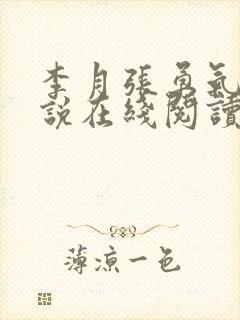 李月張勇氣
說在綫閱讀
薄涼一色